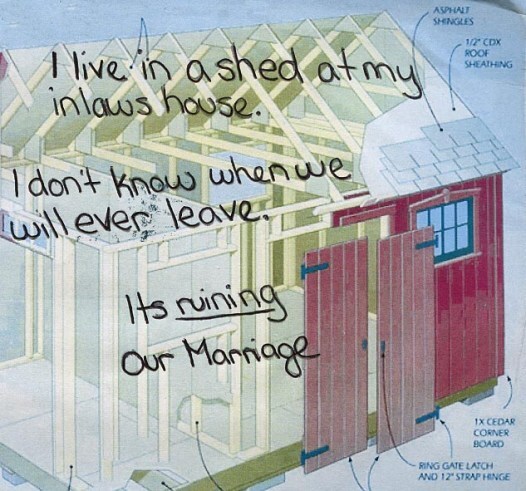 ASPHALT
SHINGLES
1/2" CDX
ROOF
SHEATHING
I live in a shed at my
inlaws house.
I don't know when we
will ever leave.
Its ruining
our Marriage
1X CEDAR
CORNER
BOARD
RING GATE LATCH
AND 12" STRAP HINGE